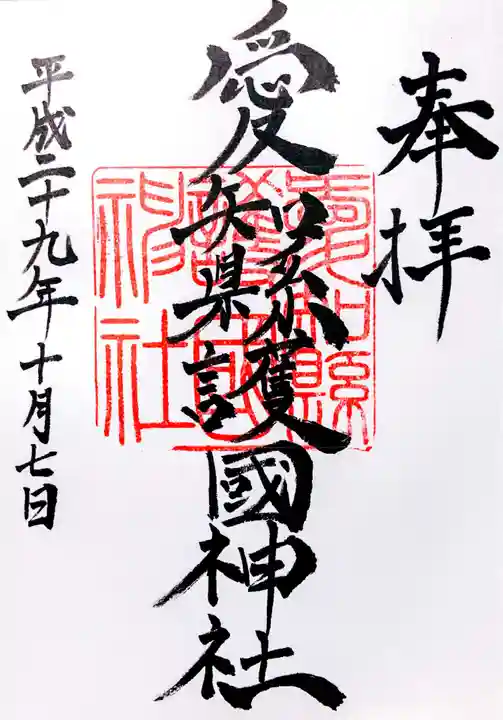 奉拝
愛知縣護國神社
愛知縣護國神社
平成二十九年十月七日